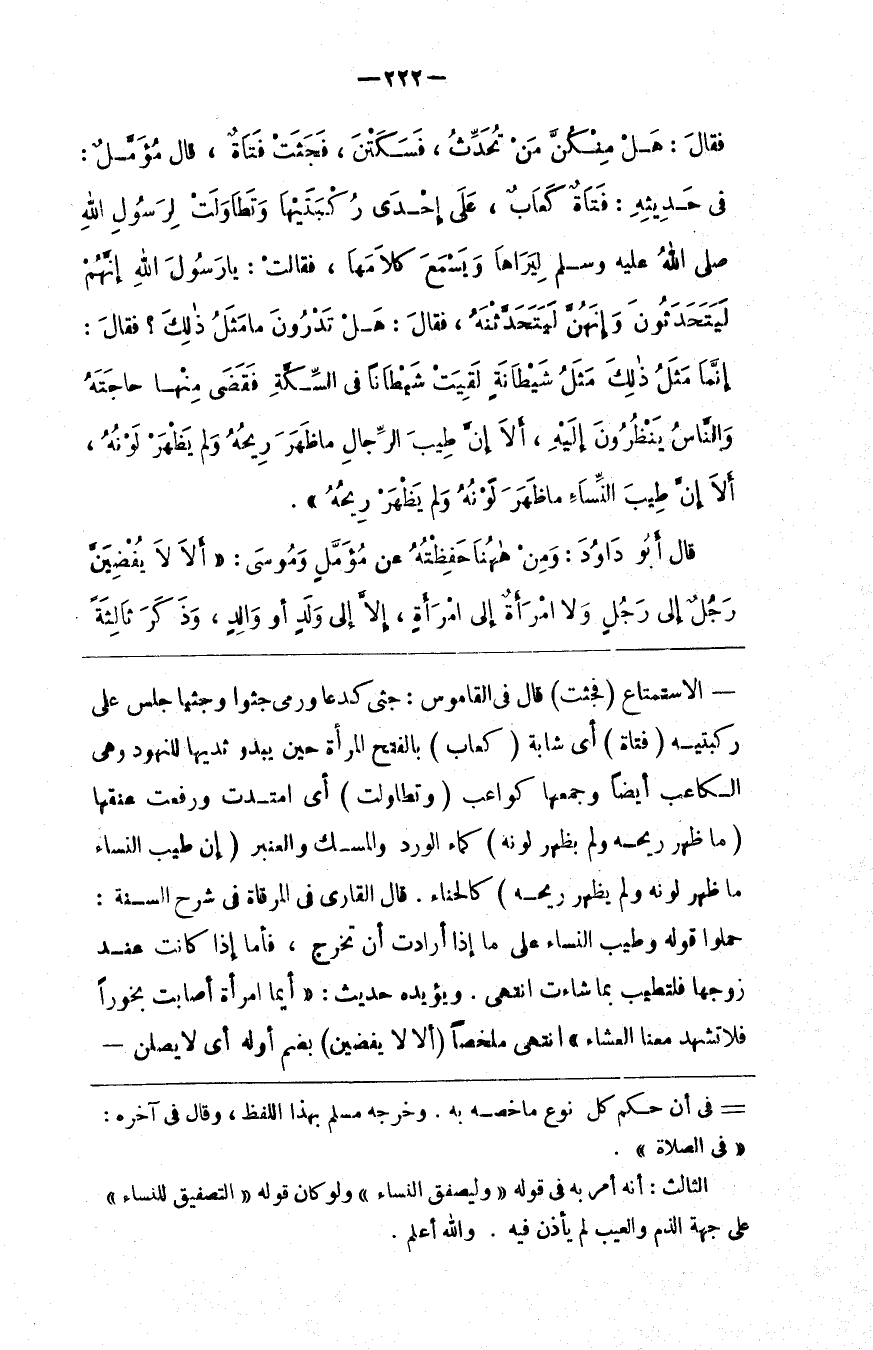 —٢٢٢—
فقالَ : هَـلْ مِنْـكُنَّ مَنْ تُحَدِّثُ ، فَسَـكَتْنَ ، فَجَثَتْ فَتَاةٌ ، قال مُؤَمَّـلٌ :
فى حَـدِيثِهِ : فَتَاةٌ كَعَابٌ ، عَلَى إِحْـدَى رُكْبَتَيْهَا وَتَطَاوَلَتْ لِرَسُولِ اللهِ
صلى اللهُ عليه وسـلم لِيَرَاهَا وَيَسْمَعَ كَلَامَهَا ، فقالتْ : يارَسُولَ اللهِ إِنَّهُمْ
لَيَتَحَدَّثُونَ وَإِنَّهُنَّ لَيَتَحَدَّثْنَهُ ، فقالَ : هَـلْ تَدْرُونَ مامَثَلُ ذٰلِكَ ؟ فقالَ :
إِنَّمَا مَثَلُ ذٰلِكَ مَثَلُ شَيْطَانَةٍ لَقِيَتْ شَيْطَاناً فى السِّـكَّةِ فَقَضَى مِنْهـا حاجَتَهُ
وَالنَّاسُ يَنْظُرُونَ إِلَيْهِ ، أَلَا إِنَّ طِيبَ الرِّجالِ ماظَهَرَ رِيحُهُ وَلم يَظْهَرْ لَوْنُهُ ،
أَلَا إِنَّ طِيبَ النِّسَاءِ ماظَهَرَ لَوْنُهُ وَلم يَظْهَرْ رِيحُهُ » .
قال أَبُو دَاوُدَ : وَمِنْ هٰهُنَا حَفِظْتُهُ عن مُؤَمَّلٍ وَمُوسَى : « أَلَا لَا يُفْضِيَنَّ
رَجُلٌ إلى رَجُلٍ وَلا امْرَأَةٌ إلى امْرَأَةٍ ، إِلاَّ إلى وَلَدٍ أو وَالِدٍ ، وَذَكَرَ ثَالِثَةً
— الاستمتاع ( فجثت ) قال فى القاموس : جثى كدعا ورمى جثوا وجثيا جلس على
ركبتيـه ( فتاة ) أى شابة ( كعاب ) بالفتح المرأة حين يبدو ثديها للنهود وهى
الـكاعب أيضاً وجمعها كواعب ( وتطاولت ) أى امتـدت ورفعت عنقها
( ما ظهر ريحـه ولم يظهر لونه ) كماء الورد والمسـك والعنبر ( إن طيب النساء
ما ظهر لونه ولم يظهر ريحـه ) كالحناء . قال القارى فى المرقاة فى شرح السـنة :
حملوا قوله وطيب النساء على ما إذا أرادت أن تخرج ، فأما إذا كانت عنـد
زوجها فلتطيب بما شاءت انتهى . ويؤيده حديث : « أيما امرأة أصابت بخوراً
فلا تشهد معنا العشاء » انتهى ملخصاً ( ألا لا يفضين ) بضم أوله أى لا يصلن —
= فى أن حـكم كل نوع ماخصـه به . وخرجه مسلم بهذا اللفظ ، وقال فى آخره :
« فى الصلاة » .
الثالث : أنه أمر به فى قوله « وليصفق النساء » ولو كان قوله « التصفيق للنساء »
على جهة الذم والعيب لم يأذن فيه . والله أعلم .